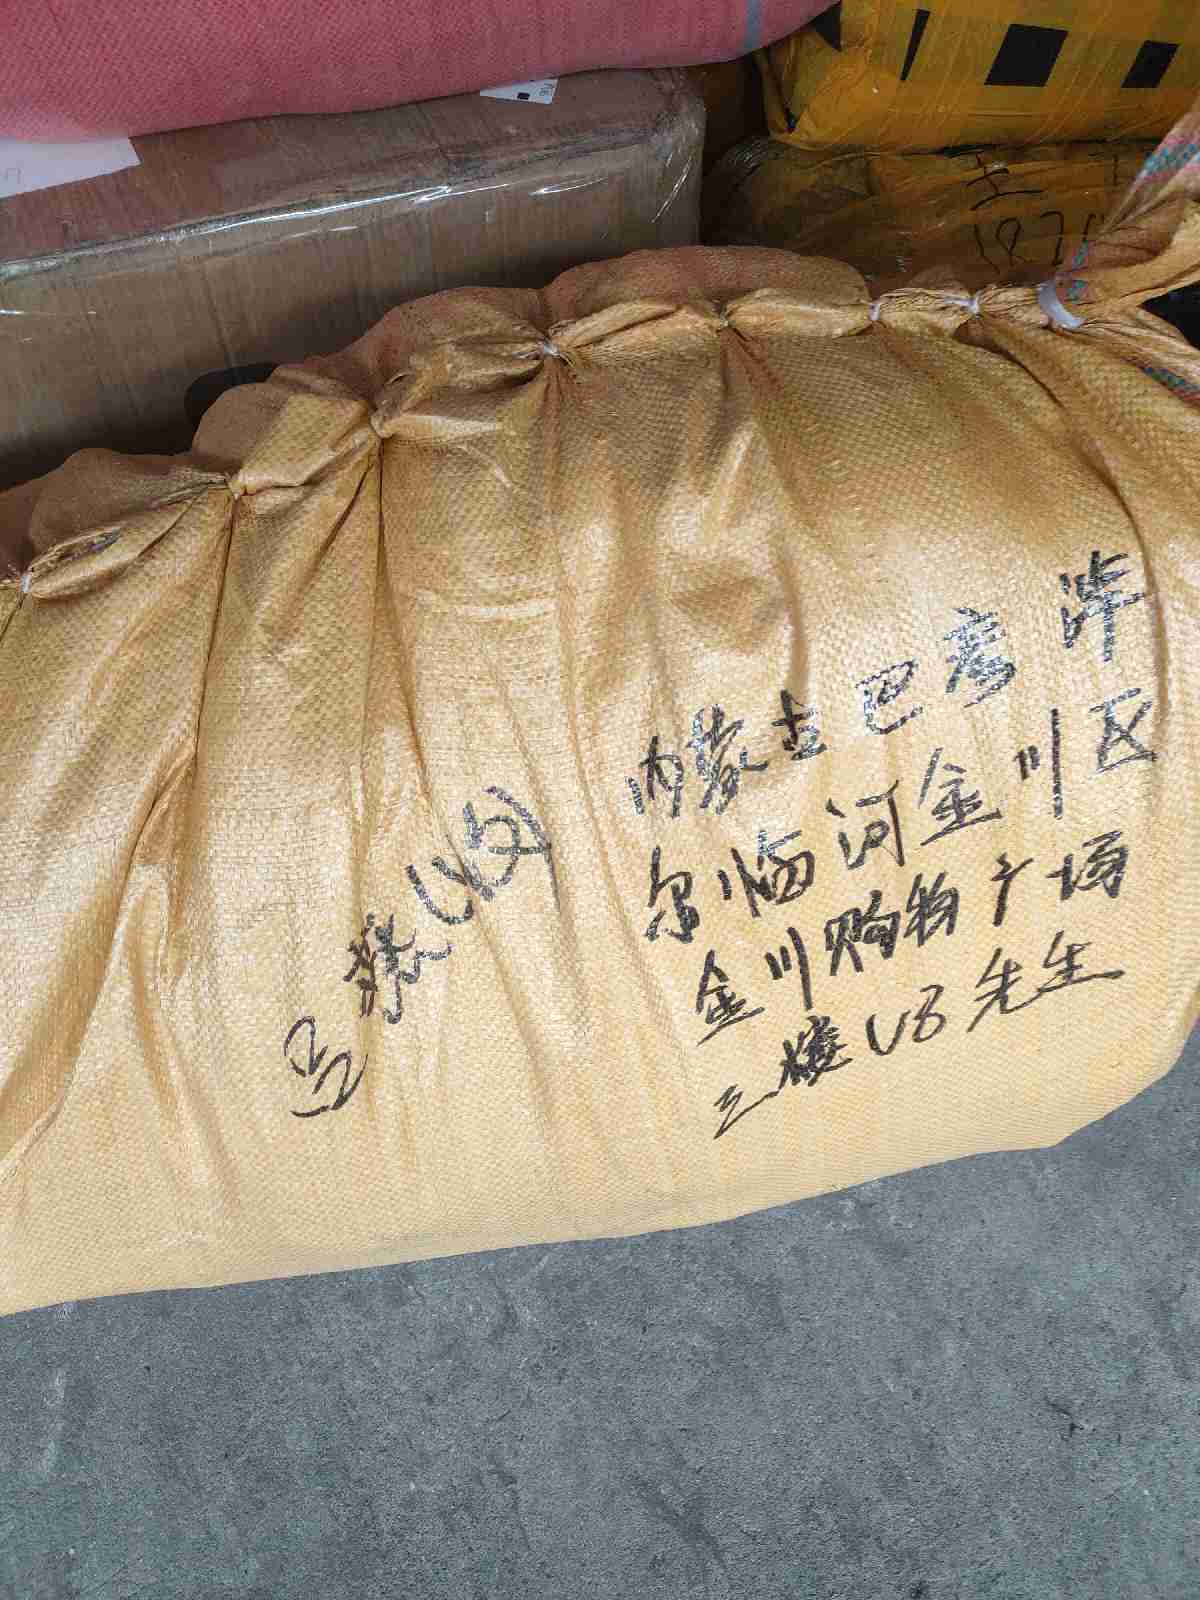 内蒙古巴彦淖
尔临河金川区
金川购物广场
三楼U8先生